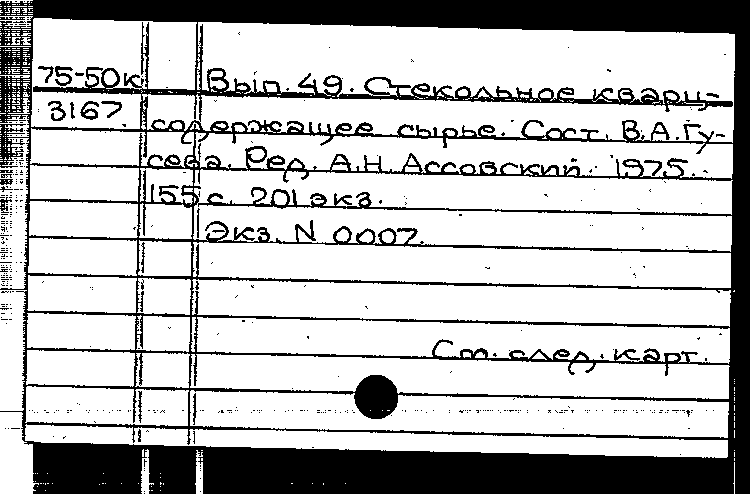 75-50к Вып. 49. Стекольное кварц-
3167 содержащее сырье. Сост. В.А.Гу-
сева. Ред. А.Н. Ассовский. 1975.
155 с. 201 экз.
Экз. N 0007.
См. след. карт.